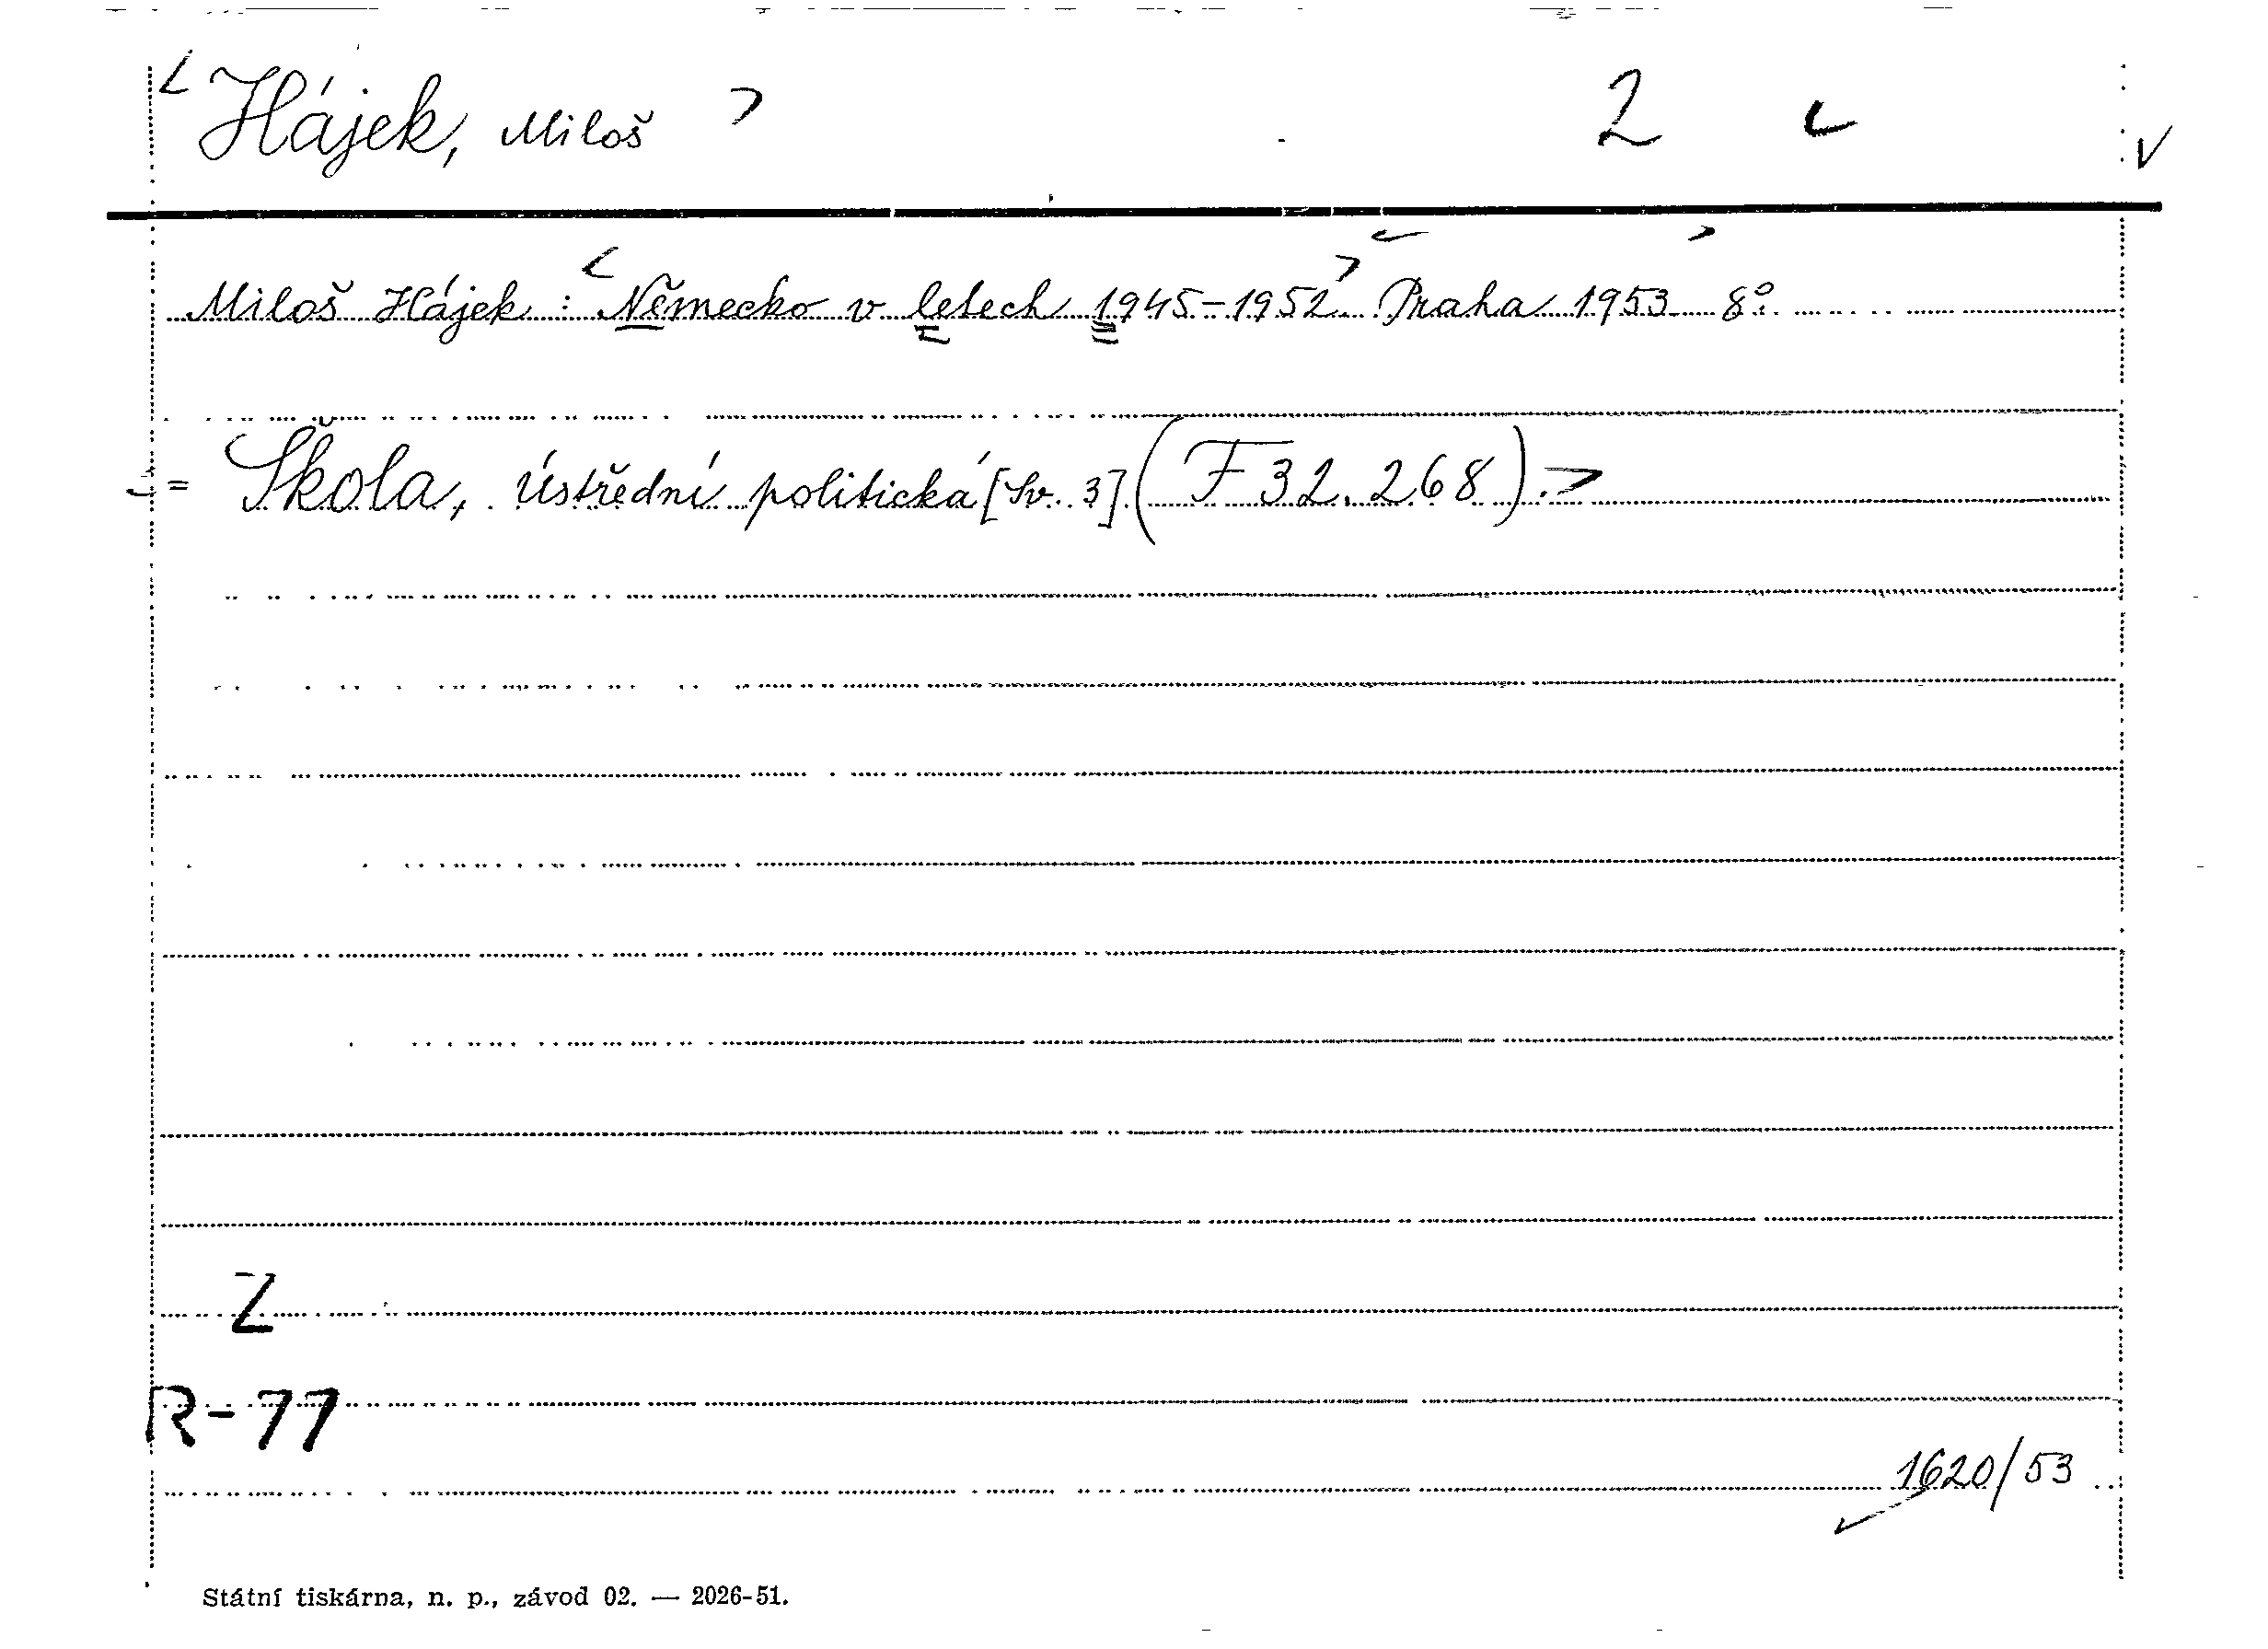 < Hájek, Miloš > 2
Miloš Hájek : <Německo v letech 1945-1952> Praha 1953 8°.
= Škola, ústřední politická [Sv. 3] (F 32.268).>
Z
R-77
1620/53
Státní tiskárna, n. p., závod 02. — 2026-51.